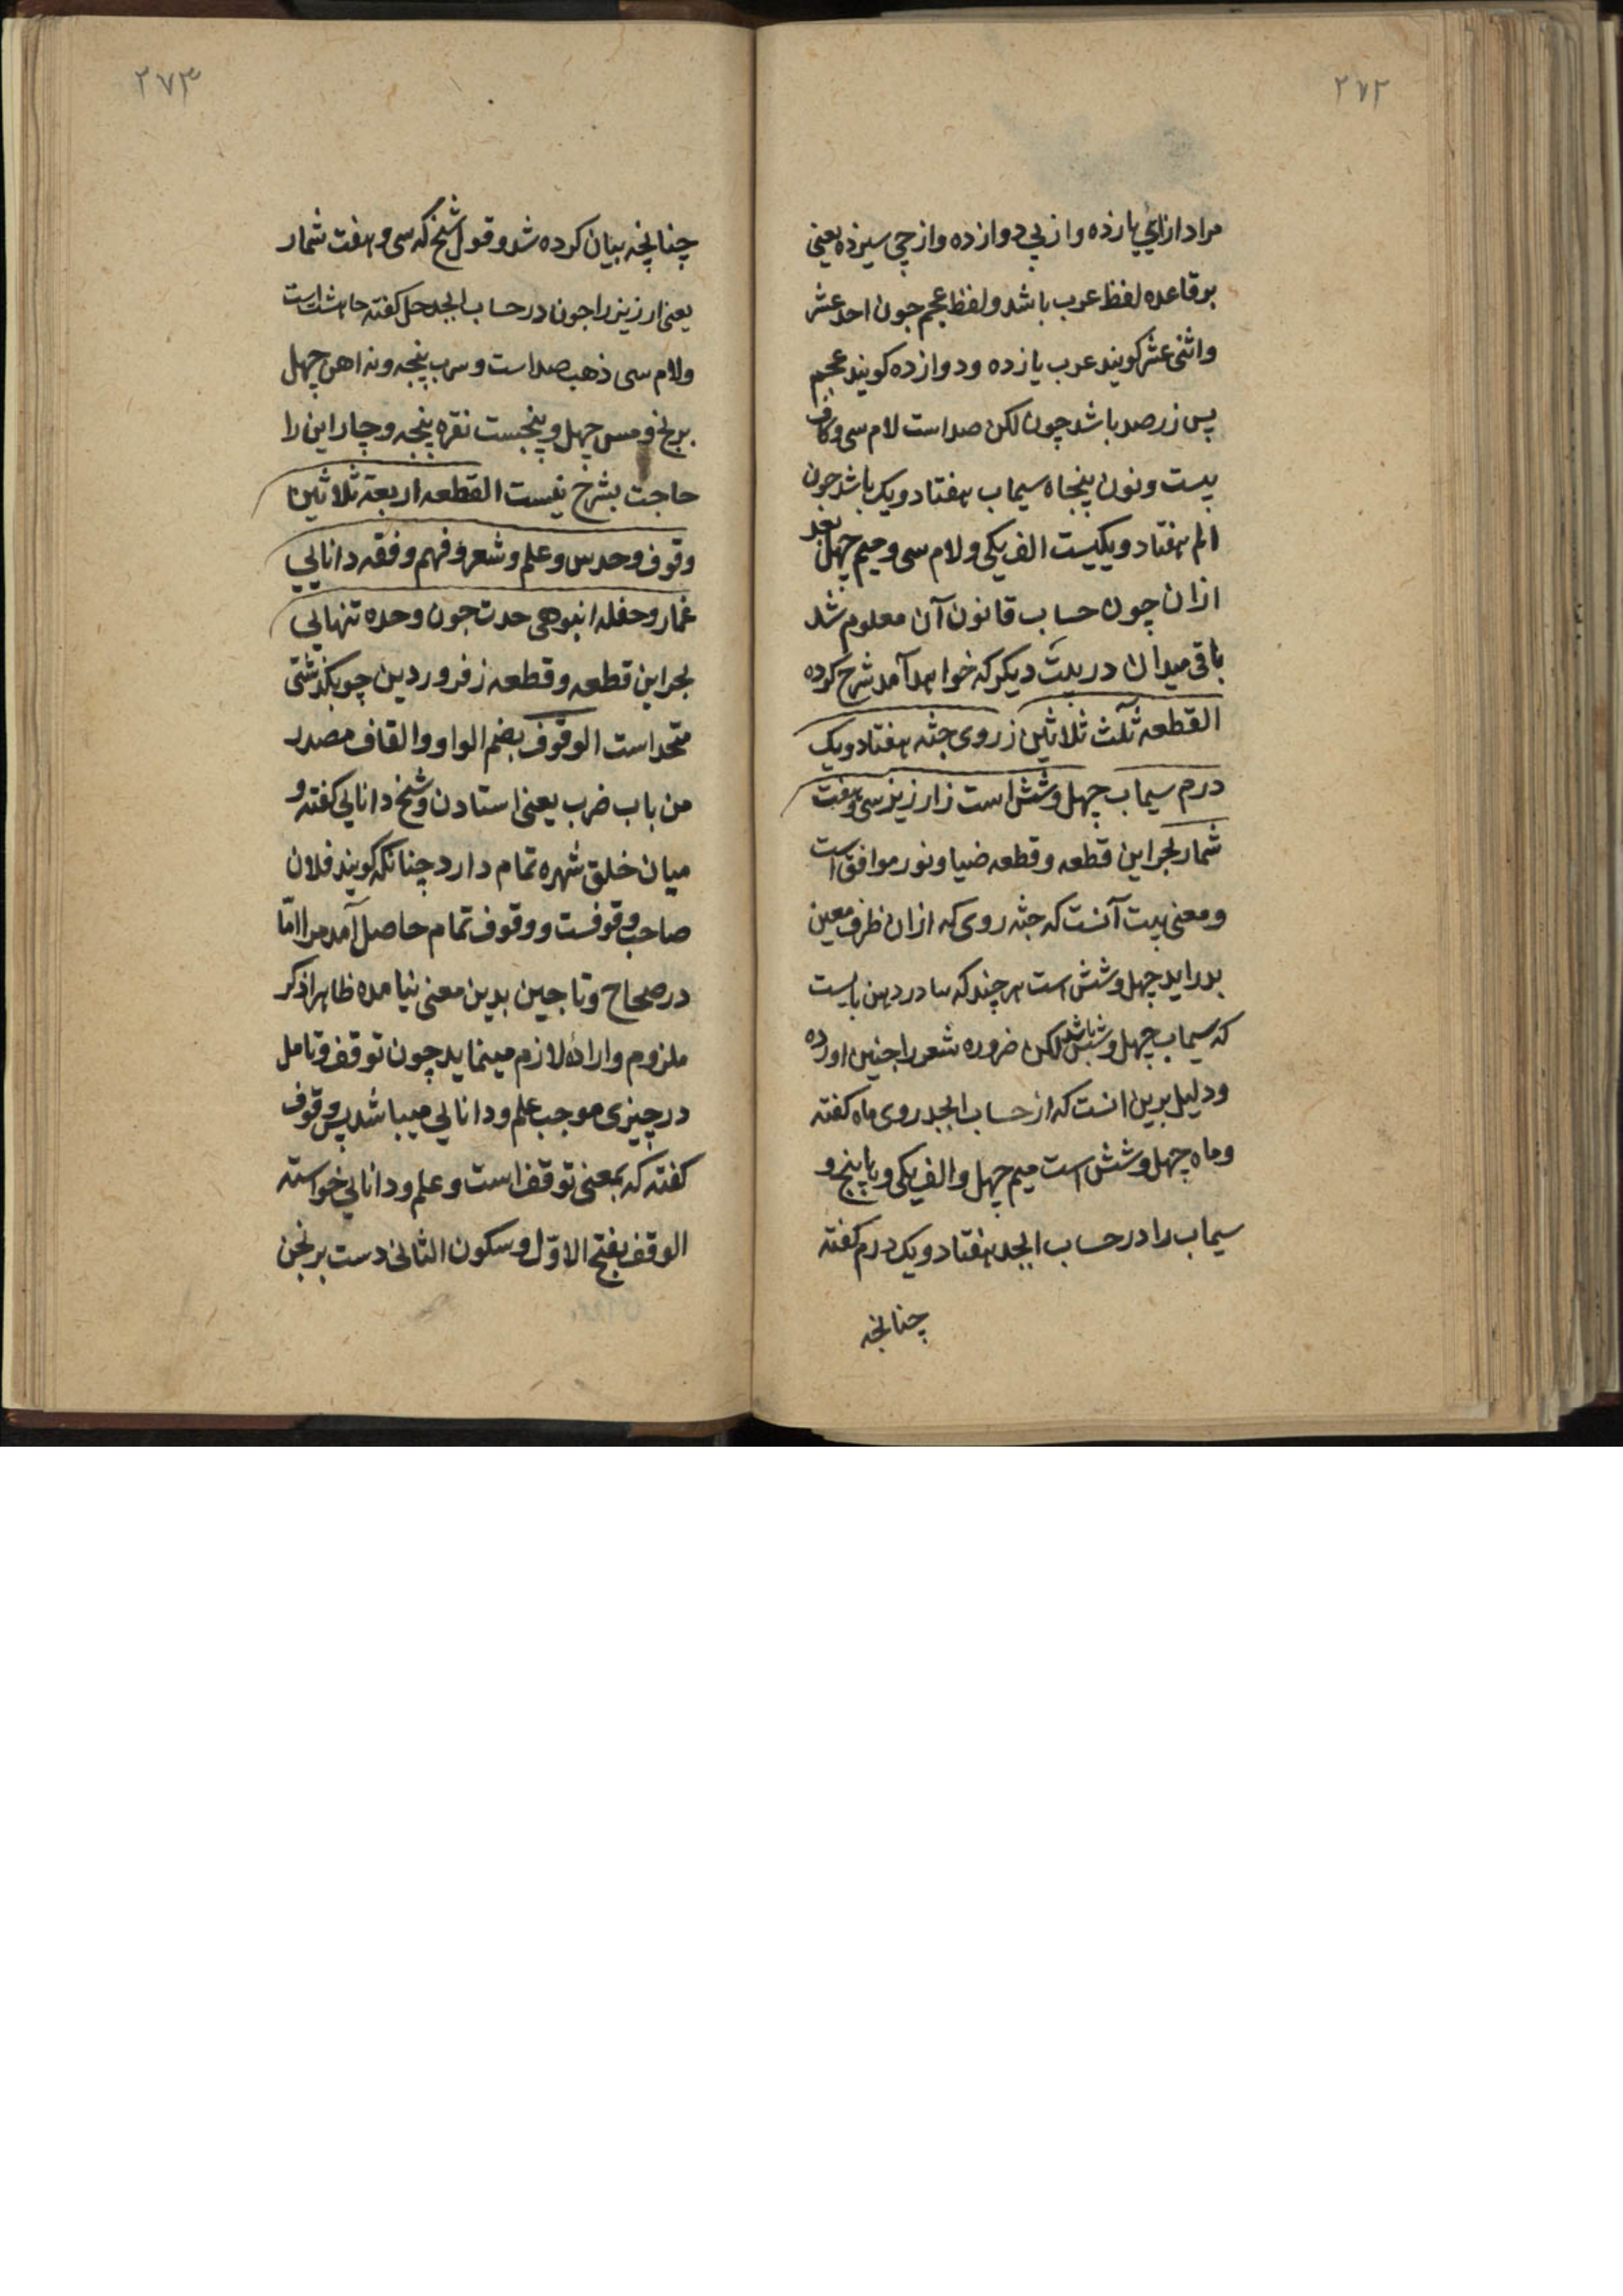 ٢٧٢
مراد از ایی یازده و از بی دوازده و از جی سیزده یعنی
بر قاعده لفظ عرب باشد و لفظ عجم جون احد عشر
و اثنی عشر کویند عرب یازده و دوازده کویند عجم
پس زر صد باشد چون لکن صد است لام سی و کاف
بیست و نون پنجاه سیماب هفتاد و یک باشد جون
الم هفتاد و یکیست الف یکی و لام سی و میم چهل بعد
ازان چون حساب قانون آن معلوم شد
باقی میدان در بیت دیکر که خواهد آمد شرح کرده
القطعه ثلث ثلاثین ز روی جثه هفتاد و یک
درم سیماب چهل و شش است ز ارزیز سی و هفت
شمار بحر این قطعه و قطعه ضیا و نور موافق است
و معنی بیت آنست که جثه روی که ازان ظرف معین
بدر اید چهل و شش است هر چند که
که سیماب چهل و شش باشد لکن ضروره شعر را جنین اورده
و دلیل برین انست که از حساب ابجد روی ماه کفته
و ماه چهل و شش است میم چهل و الف یکی و ها پنج و
سیماب را در حساب ابجد هفتاد و یک درم کفته
چنانچه
٢٧٣
چنانچه بیان کرده شد و قول شیخ که سی و هفت شمار
یعنی ارزیز را جون در حساب ابجد حل کفته حا هشت است
و لام سی ذهب صد است و سرب پنجه و نه اهن چهل
برنج و مس چهل و پنجست نقره پنجه و چار این را
حاجت بشرح نیست القطعه اربعة ثلاثین
وقوف و حدس و علم و شعر و فهم و فقه دانایی
غمار و حفله انبوهی حدت جون وحده تنهایی
بحر این قطعه و قطعه ز فروردین چو بکذشتی
متحد است الوقوف بضم الواو و القاف مصدر
من باب ضرب یعنی استادن و شیخ دانایی کفته و
میان خلق شهره تمام دارد چنانکه کویند فلان
صاحب وقوفست و وقوف تمام حاصل آمد مرا امّا
در صحاح و تاجین بدین معنی نیامده ظاهرا ذکر
ملزوم و اراده لازم مینماید چون توقف و تامل
در چیزی موجب علم و دانایی میباشد پس وقوف
کفته که بمعنی توقف است و علم و دانایی خواسته
الوقف بفتح الاوّل و سکون الثانی دست برنجن